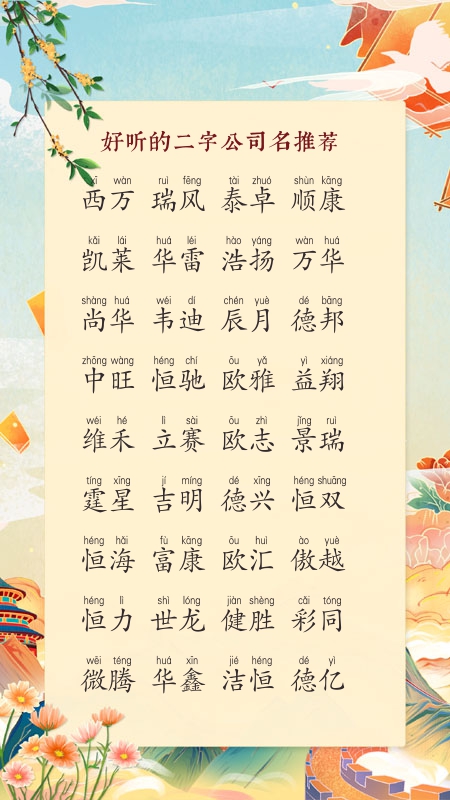 好听的二字公司名推荐
xī wàn ruì fēng tài zhuó shùn kāng
西万 瑞风 泰卓 顺康
kǎi lái huá léi hào yáng wàn huá
凯莱 华雷 浩扬 万华
shàng huá wéi dí chén yuè dé bāng
尚华 韦迪 辰月 德邦
zhōng wàng héng chí ōu yǎ yì xiáng
中旺 恒驰 欧雅 益翔
wéi hé lì sài ōu zhì jǐng ruì
维禾 立赛 欧志 景瑞
tíng xīng jí míng dé xīng héng shuāng
霆星 吉明 德兴 恒双
héng hǎi fù kāng ōu huì ào yuè
恒海 富康 欧汇 傲越
héng lì shì lóng jiàn shèng cǎi tóng
恒力 世龙 健胜 彩同
wēi téng huá xīn jié héng dé yì
微腾 华鑫 洁恒 德亿